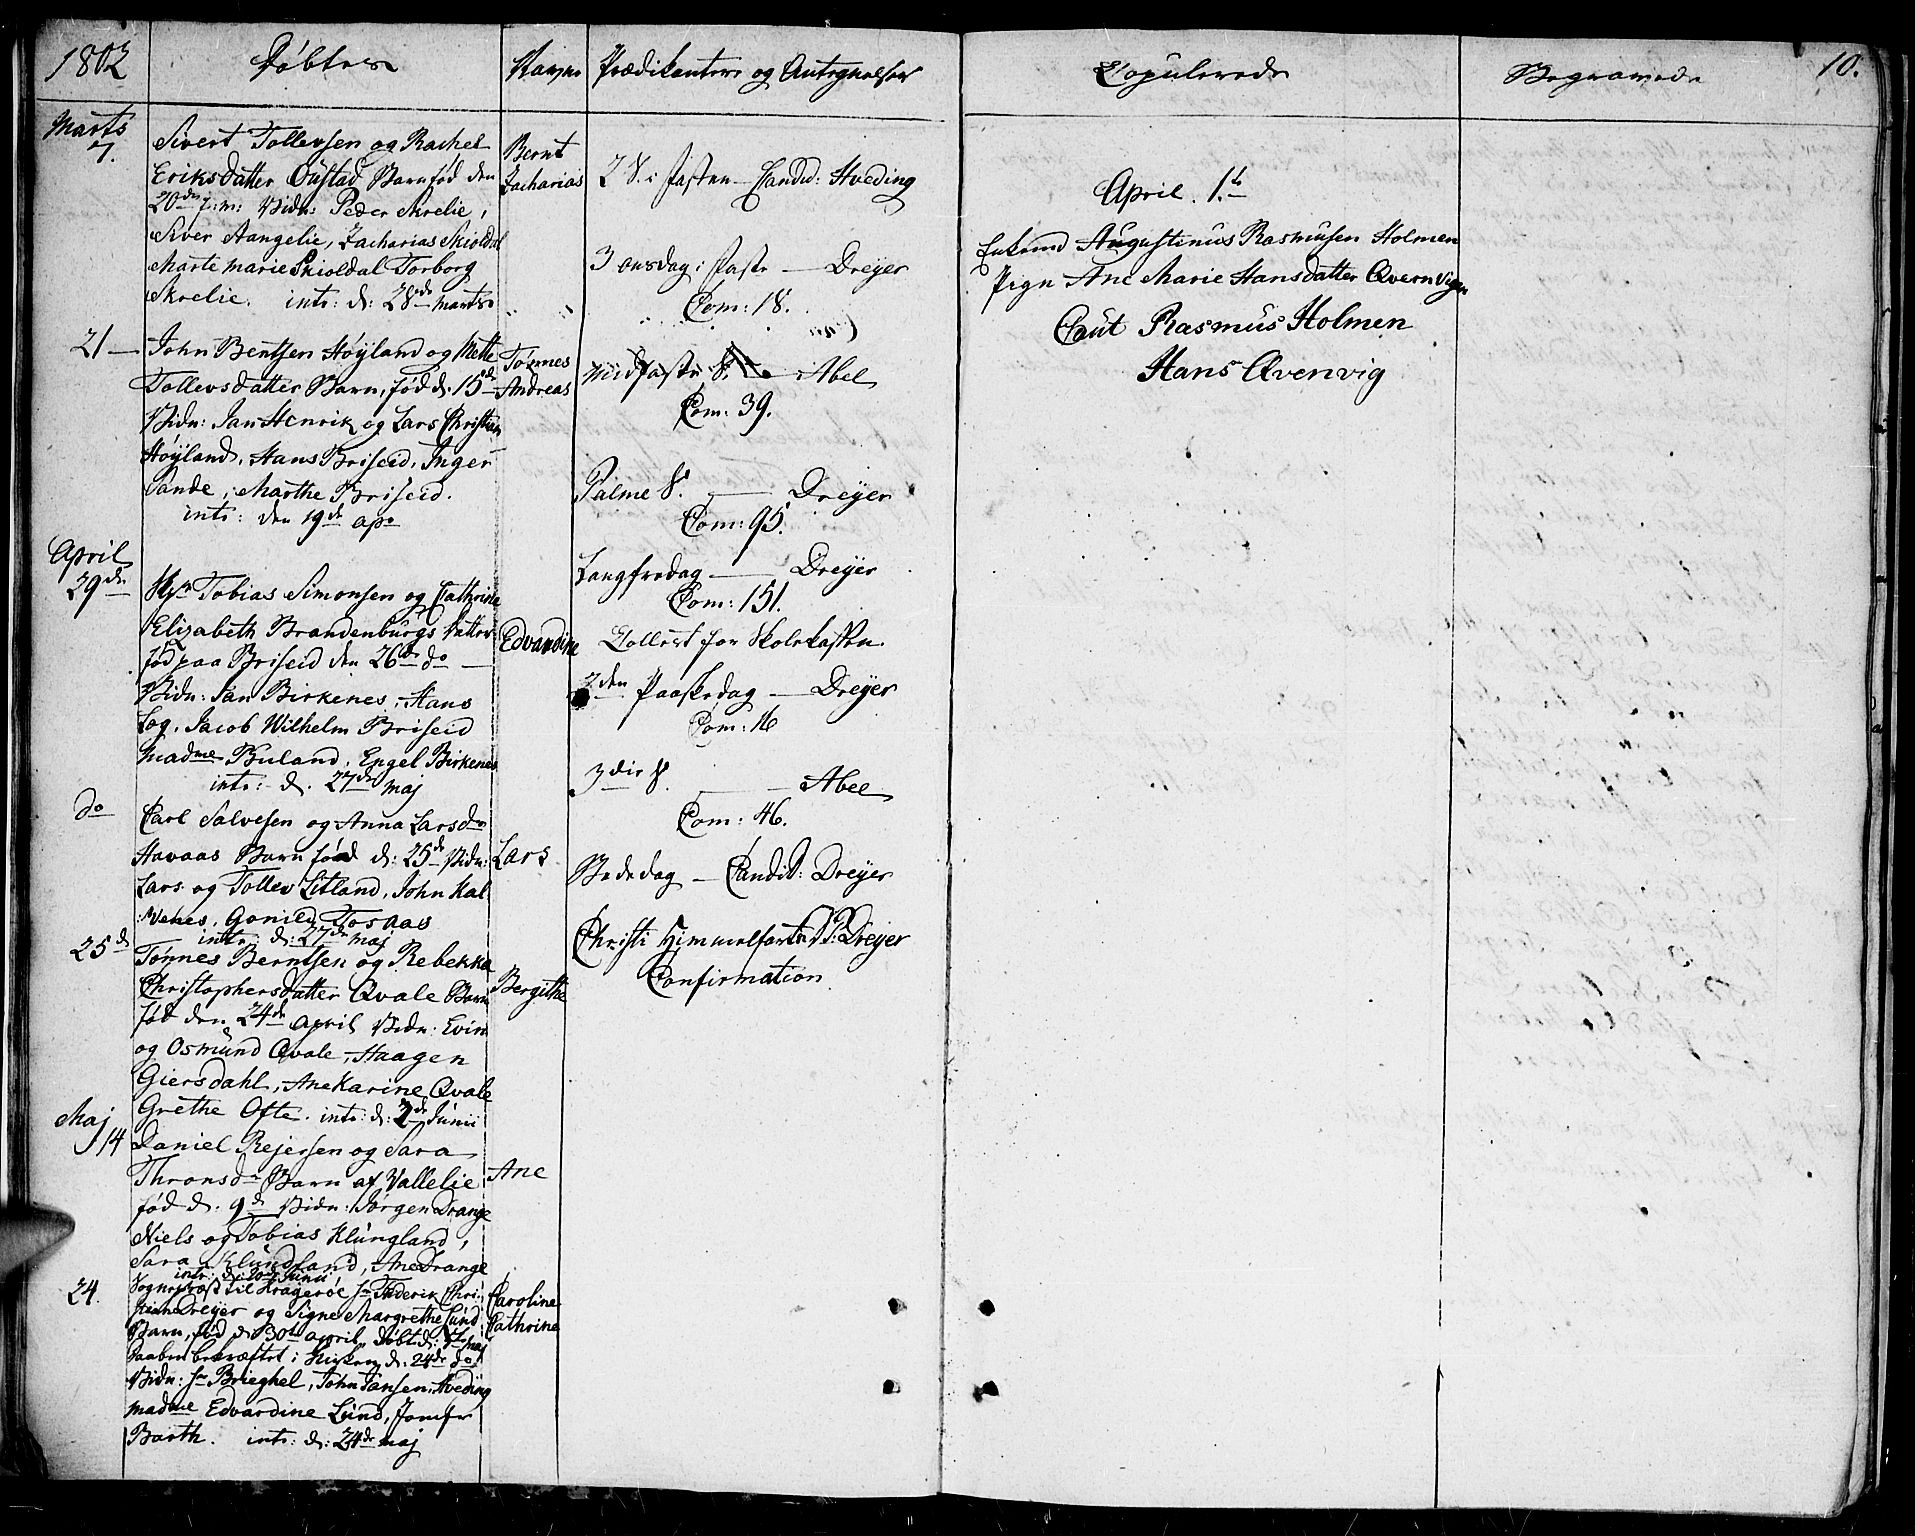 1802
Døbte
Navne
Prædikantere og Antegnelser
Copulerede
Begravede
10.
Marts
7.
Sivert Tollevsen og Rachel
Eriksdatter Øustad Barn fød den
20de f: m: Vidn: Peder Skrelie,
Siver Aangelie, Zacharias Skioldal
Marte Marie Skioldal Torborg
Skrelie. intr: d: 28de Marts
Bernt
Zacharias
21
John Bentsen Høyland og Mette
Tollevsdatter Barn, fød d: 15de
Vidn: Jan Henrik og Lars Christian
Høyland, Hans Briseid, Inger
Sande, Marthe Briseid.
intr: den 19de apr
Tønnes
Andreas
April
29de
Hr Tobias Simonsen og Cathrine
Elizabeth Brandenburgs Datter
fød paa Briseid den 26de do
Vidn: Jan Birkenes, Hans
Log, Jacob Wilhelm Briseid
Madme Buland, Engel Birkenes
intr: d. 27de Maj
Edvardine
do
Carl Salvesen og Anna Larsdr
Havaas Barn fød d: 25de Vidn:
Lars og Tollev Litland, John Kal
:venes, Gonild Tosaas
intr: d: 27de Maj
Lars
25d
Tønnes Berntsen og Rebekka
Christophersdatter Qvale Barn
fød den 24de April Vidn: Evin
og Osmund Qvale, Haagen
Giersdahl, Ane Karine Qvale
Grethe Ofte. intr: d: 2de Junii
Bergithe
Maj
14
Daniel Rejersen og Sara
Thronsdr Barn af Vallelie
fød d. 9de Vidn: Jørgen Drange
Niels og Tobias Klungland,
Sara Klungland, Ane Drange
intr: d: Junii
Ane
24.
Sogneprest til Kragerøe Hr Frederik Chri:
stian Dreyer og Signe Margrethe Lund
Barn, fød d 30te April, døbt d: Maj
Daaben bekræftet i Kirken d: 24de do
Vidn: Hr Brieghel, John Jansen, Hveding
Madme Edvardine Lund, Jomfr
Barth. intr: d: 24de Maj
Caroline
Cathrine
2 S. i Fasten Candid: Hveding
3 onsdag i Faste Dreyer
Com: 18.
Midfaste S. Abel
Com: 39.
Palme S. Dreyer
Com: 95.
Langfredag Dreyer
Com: 151.
Collect for Skolekassen
2den Paaskedag Dreyer
Com: 16
3die S. Abel
Com: 46.
Bededag Candid: Dreyer
Christi Himmelfarts D: Dreyer
Confirmation
April. 1.
Enkemd Augustinus Rasmusen Holmen
Pign Ane Marie Hansdatter Qvernvigen
Caut Rasmus Holmen
Hans Qvenvig